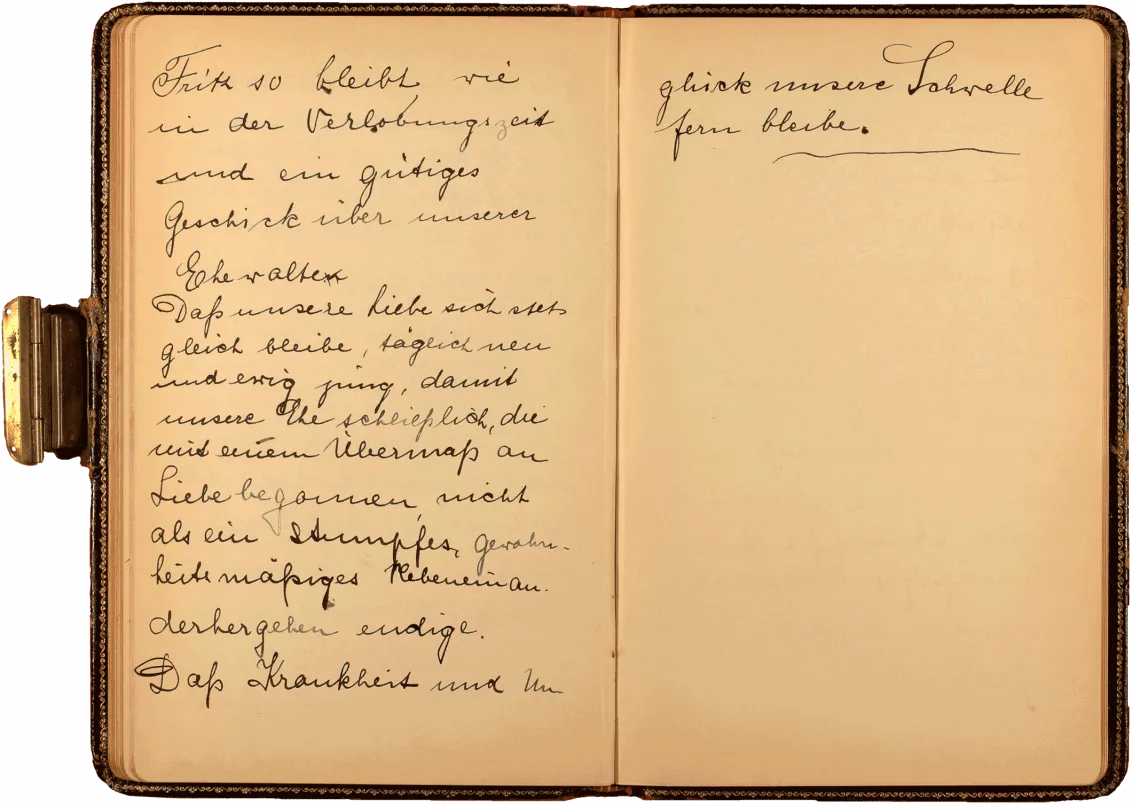 Fritz so bleibt wie
in der Verlobungszeit
und ein gütiges
Geschick über unserer
Ehe walte
Daß unsere Liebe sich stets
gleich bleibe, täglich neu
und ewig jung, damit
unsere Ehe schließlich, die
mit einem Übermaß an
Liebe begonnen, nicht
als ein stumpfes, gewohn-
heitsmäßiges Nebeneinan-
derhergehen endige.
Daß Krankheit und Un-
glück unsere Schwelle
fern bleibe.